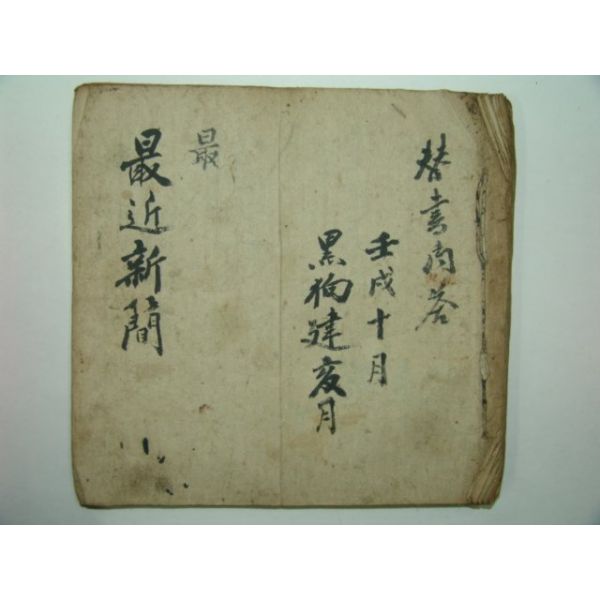 替書内答
壬戌十月
黑狗建亥月
最
最近新簡